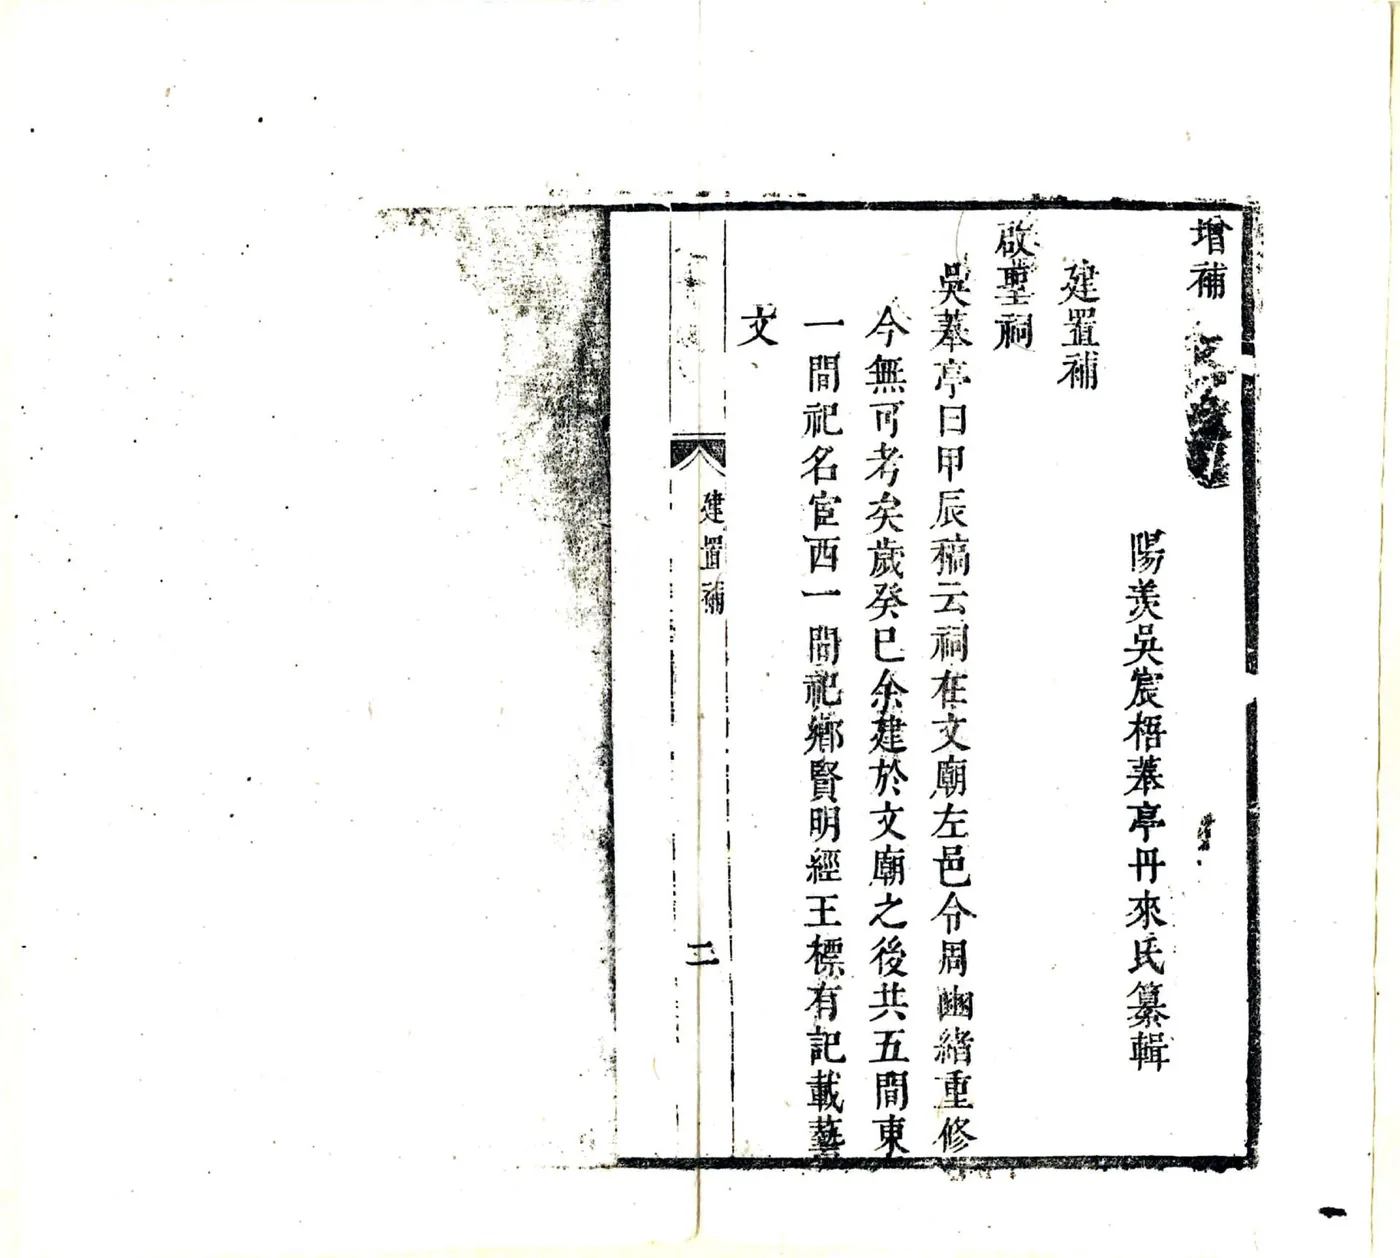 增補
陽羨吳宸梧葊亭丹來氏纂輯
建置補
啟聖祠
吳葊亭曰甲辰稿云祠在文廟左邑令周幽緒重修
今無可考矣歲癸巳余建於文廟之後共五間東
一間祀名宦西一間祀鄉賢明經王標有記載藝
文
建置補
二